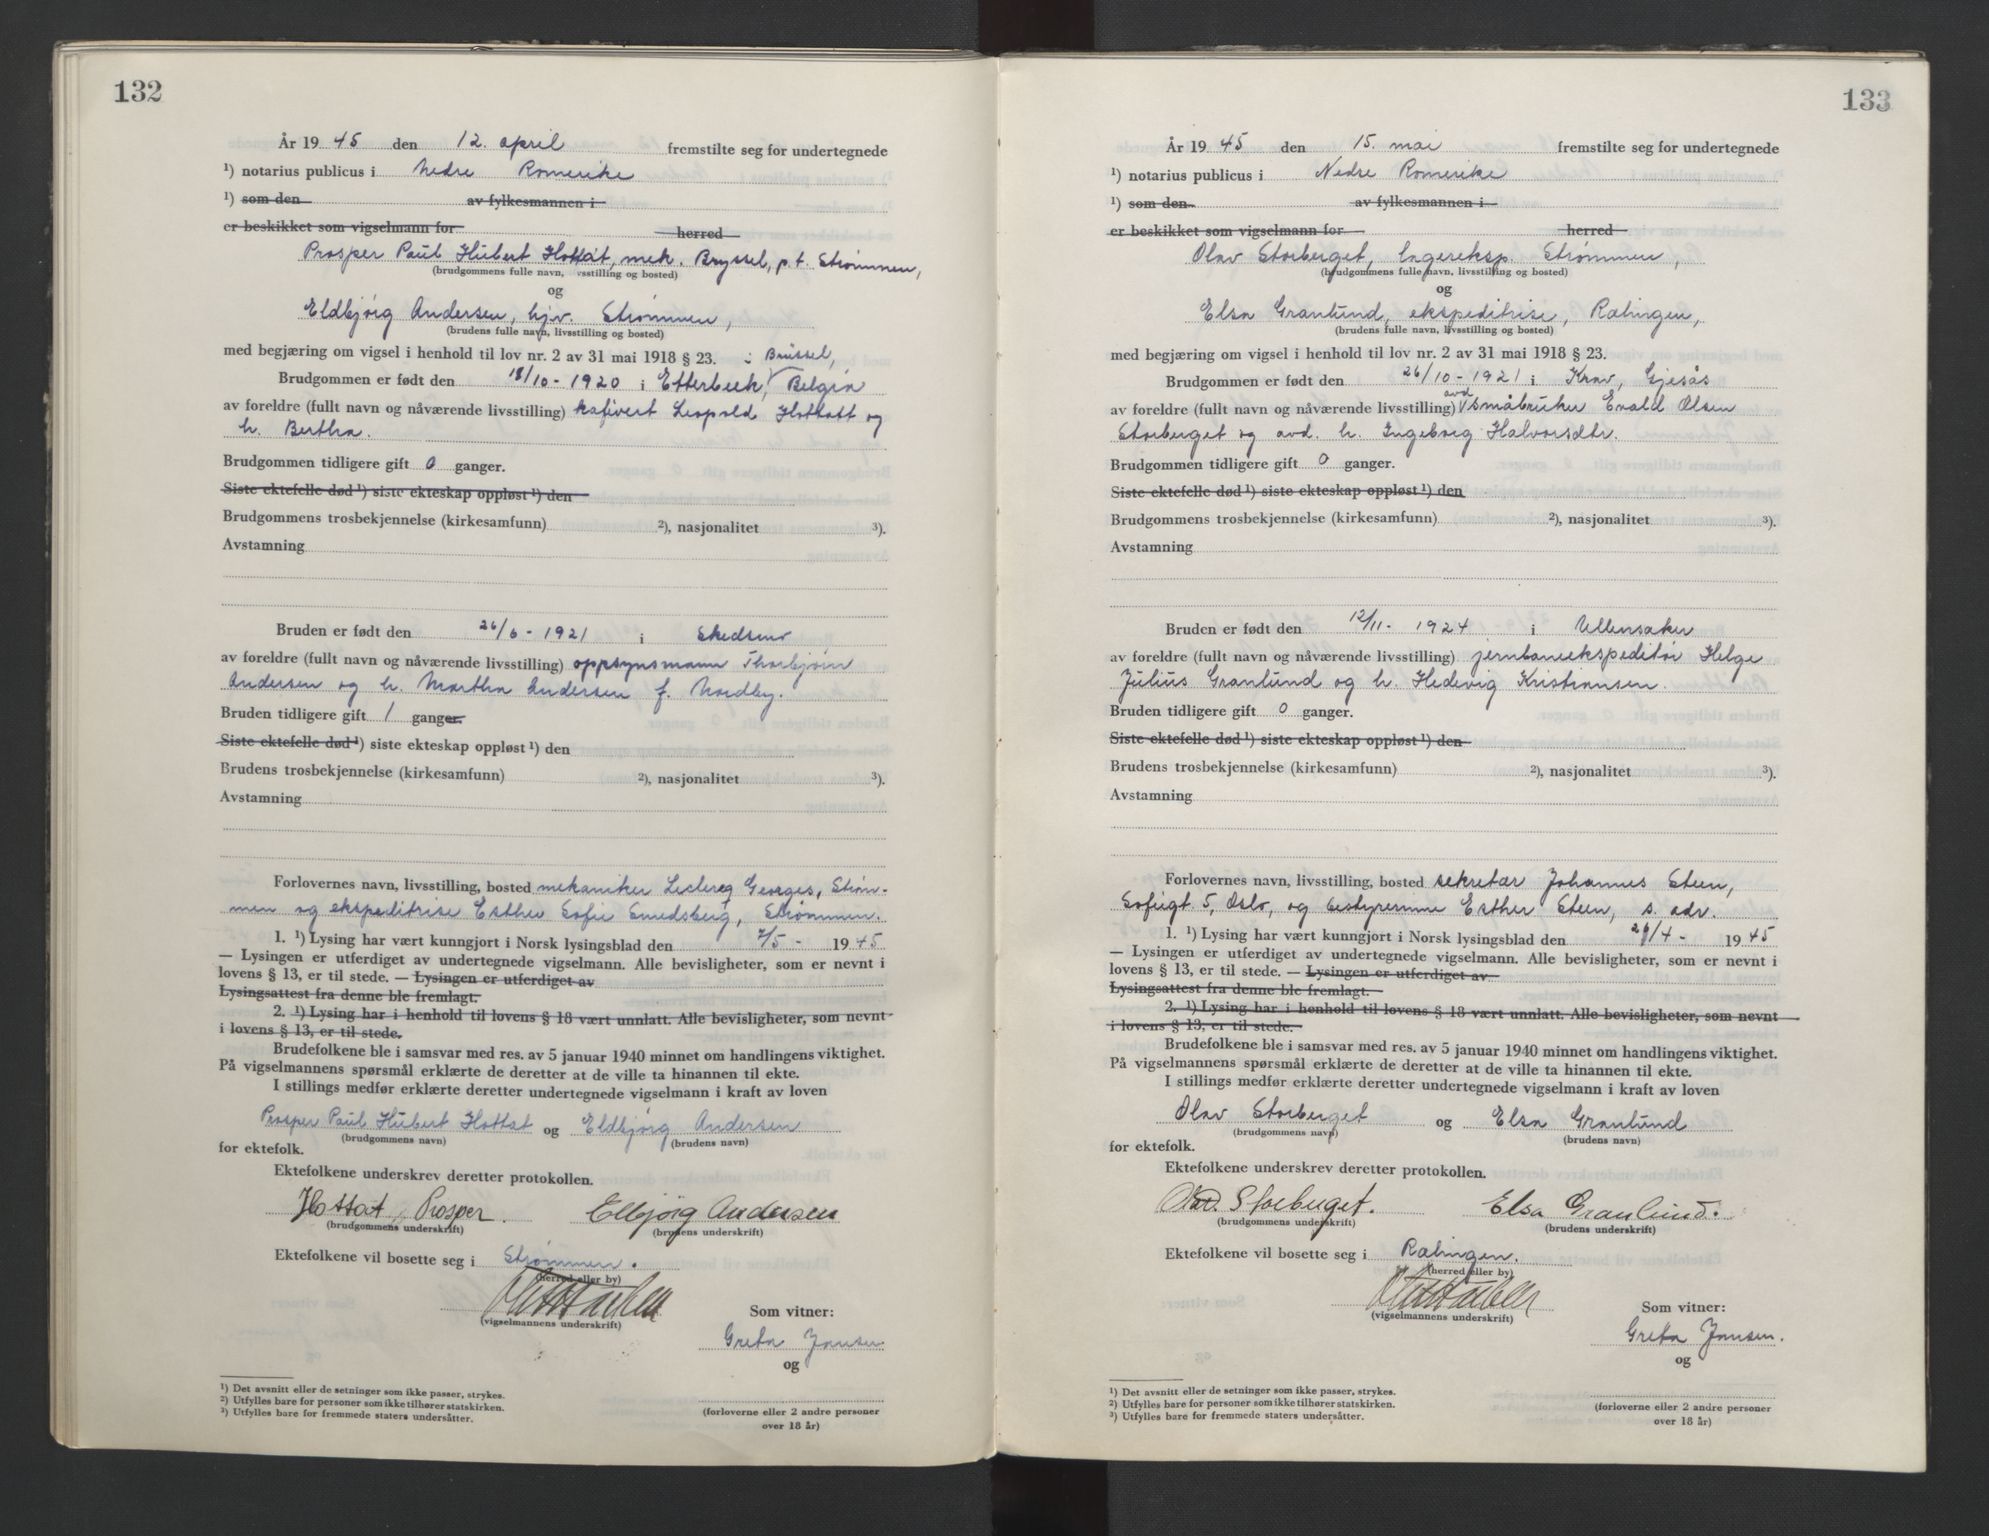 132
År 19 45 den 12. april fremstilte seg for undertegnede
¹) notarius publicus i Nedre Romerike
¹) som den av fylkesmannen i
er beskikket som vigselmann for herred
Prosper Paul Hubert Hottat, mek. Bryssel, p.t. Strømmen,
(brudgommens fulle navn, livsstilling og bosted)
og
Eldbjørg Andersen, hjv. Strømmen,
(brudens fulle navn, livsstilling og bosted)
med begjæring om vigsel i henhold til lov nr. 2 av 31 mai 1918 § 23. : Brüssel,
Brudgommen er født den 18/10 - 1920 i Etterbeek, Belgia
av foreldre (fullt navn og nåværende livsstilling) kafivert Leopold Hottatt og
h. Bertha.
Brudgommen tidligere gift 0 ganger.
Siste ektefelle død ¹) siste ekteskap oppløst ¹) den
Brudgommens trosbekjennelse (kirkesamfunn) ²), nasjonalitet ³).
Avstamning
Bruden er født den 26/6 - 1921 i Skedsmo
av foreldre (fullt navn og nåværende livsstilling) oppsynsmann Thorbjørn
Andersen og h. Martha Andersen f. Nordby.
Bruden tidligere gift 1 ganger.
Siste ektefelle død ¹) siste ekteskap oppløst ¹) den
Brudens trosbekjennelse (kirkesamfunn) ²), nasjonalitet ³).
Avstamning
Forlovernes navn, livsstilling, bosted mekaniker Leclerq Georges, Strøm-
men og ekspeditrise Esther Sofie Smedsberg, Strømmen.
1. ¹) Lysing har vært kunngjort i Norsk lysingsblad den 7/5 - 19 45
— Lysingen er utferdiget av undertegnede vigselmann. Alle bevisligheter, som er nevnt i
lovens § 13, er til stede. — Lysingen er utferdiget av
Lysingsattest fra denne ble fremlagt.
2. ¹) Lysing har i henhold til lovens § 18 vært unnlatt. Alle bevisligheter, som nevnt
i lovens § 13, er til stede.
Brudefolkene ble i samsvar med res. av 5 januar 1940 minnet om handlingens viktighet.
På vigselmannens spørsmål erklærte de deretter at de ville ta hinannen til ekte.
I stillings medfør erklærte deretter undertegnede vigselmann i kraft av loven
Prosper Paul Hubert Hottat og Eldbjørg Andersen
(brudgommens navn) (brudens navn)
for ektefolk.
Ektefolkene underskrev deretter protokollen.
Hottat, Prosper. Elbjörg Andersen
(brudgommens underskrift) (brudens underskrift)
Ektefolkene vil bosette seg i Strømmen.
(herred eller by)
(vigselmannens underskrift)
Som vitner:
Greta Jansen
og
(forloverne eller 2 andre personer
over 18 år)
¹) Det avsnitt eller de setninger som ikke passer, strykes.
²) Utfylles bare for personer som ikke tilhører statskirken.
³) Utfylles bare for fremmede staters undersåtter.
133
År 19 45 den 15. mai fremstilte seg for undertegnede
¹) notarius publicus i Nedre Romerike
¹) som den av fylkesmannen i
er beskikket som vigselmann for herred
Olav Storberget, lagereksp. Strømmen,
(brudgommens fulle navn, livsstilling og bosted)
og
Elsa Granlund, ekspeditrise, Rælingen,
(brudens fulle navn, livsstilling og bosted)
med begjæring om vigsel i henhold til lov nr. 2 av 31 mai 1918 § 23.
Brudgommen er født den 26/10 - 1921 i Krav, Gjesås
av foreldre (fullt navn og nåværende livsstilling) avd småbruker Evald Olsen
Storberget og avd. h. Ingeborg Halvorsdtr.
Brudgommen tidligere gift 0 ganger.
Siste ektefelle død ¹) siste ekteskap oppløst ¹) den
Brudgommens trosbekjennelse (kirkesamfunn) ²), nasjonalitet ³).
Avstamning
Bruden er født den 12/11 - 1924 i Ullensaker
av foreldre (fullt navn og nåværende livsstilling) jernbaneekspeditør Helge
Julius Granlund og h. Hedevig Kristiansen.
Bruden tidligere gift 0 ganger.
Siste ektefelle død ¹) siste ekteskap oppløst ¹) den
Brudens trosbekjennelse (kirkesamfunn) ²), nasjonalitet ³).
Avstamning
Forlovernes navn, livsstilling, bosted sekretær Johannes Steen,
Sofiegt. 5, Oslo, og bestyrerinne Esther Steen, s. adr.
1. ¹) Lysing har vært kunngjort i Norsk lysingsblad den 26/4 - 19 45
— Lysingen er utferdiget av undertegnede vigselmann. Alle bevisligheter, som er nevnt i
lovens § 13, er til stede. — Lysingen er utferdiget av
Lysingsattest fra denne ble fremlagt.
2. ¹) Lysing har i henhold til lovens § 18 vært unnlatt. Alle bevisligheter, som nevnt
i lovens § 13, er til stede.
Brudefolkene ble i samsvar med res. av 5 januar 1940 minnet om handlingens viktighet.
På vigselmannens spørsmål erklærte de deretter at de ville ta hinannen til ekte.
I stillings medfør erklærte deretter undertegnede vigselmann i kraft av loven
Olav Storberget og Elsa Granlund
(brudgommens navn) (brudens navn)
for ektefolk.
Ektefolkene underskrev deretter protokollen.
Olav Storberget. Elsa Granlund.
(brudgommens underskrift) (brudens underskrift)
Ektefolkene vil bosette seg i Rælingen.
(herred eller by)
(vigselmannens underskrift)
Som vitner:
Greta Jansen.
og
(forloverne eller 2 andre personer
over 18 år)
¹) Det avsnitt eller de setninger som ikke passer, strykes.
²) Utfylles bare for personer som ikke tilhører statskirken.
³) Utfylles bare for fremmede staters undersåtter.